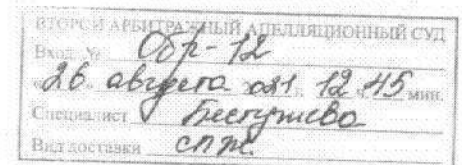 ВТОРОЙ АРБИТРАЖНЫЙ АПЕЛЛЯЦИОННЫЙ СУД
Вход. № Обр-12
«26» августа 2021 г. 12 ч. 45 мин.
Специалист
Вид доставки